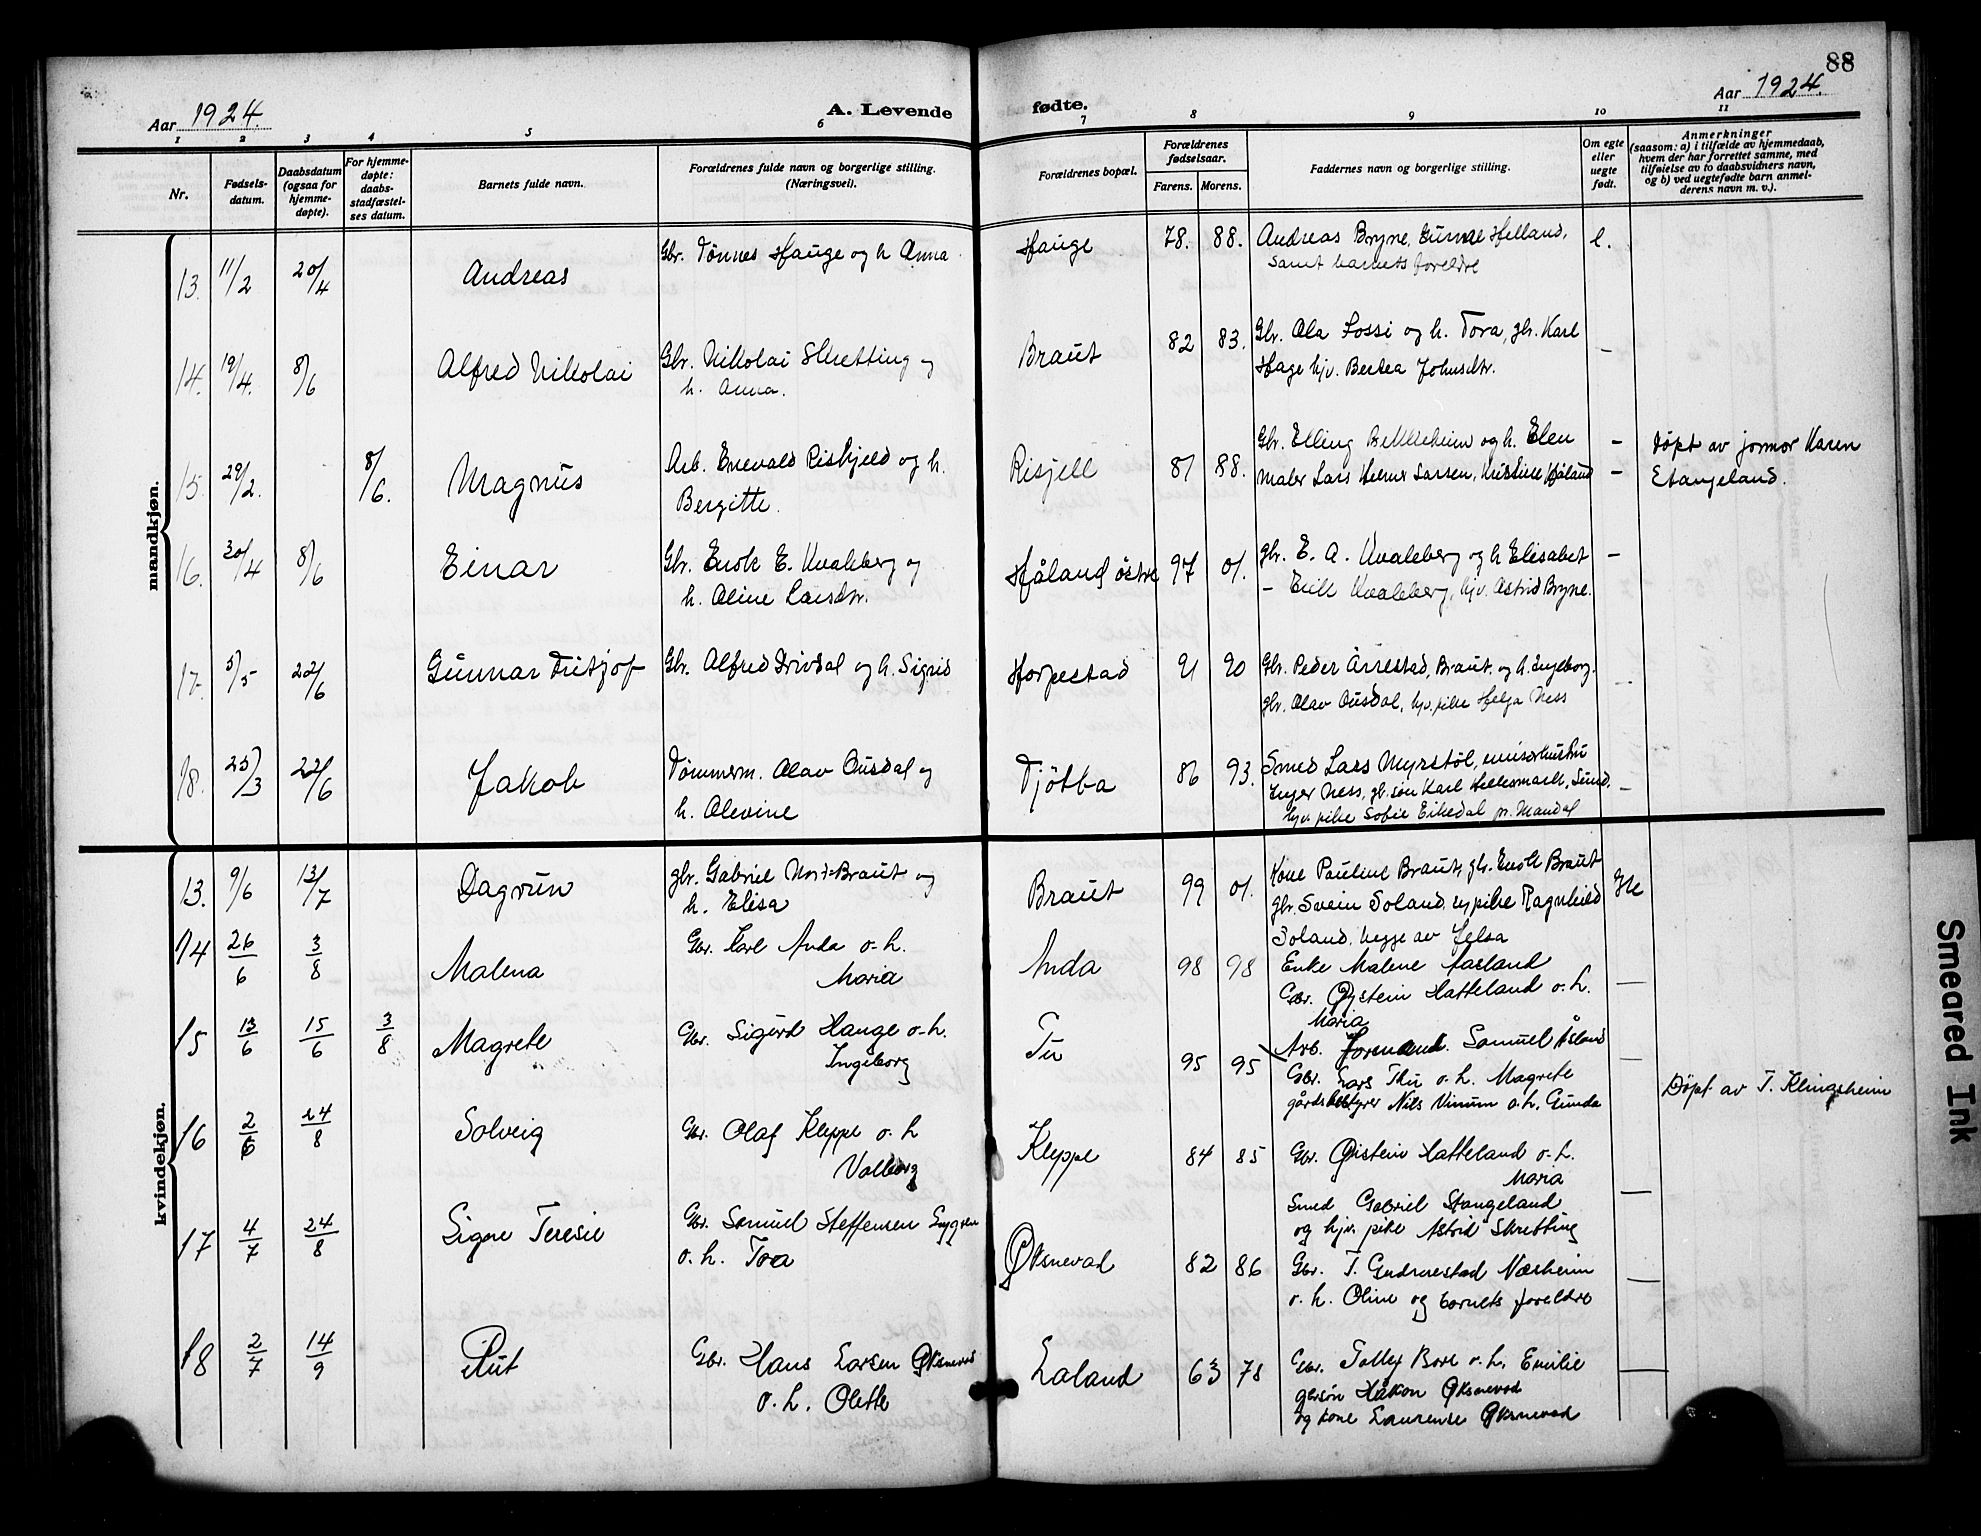 88
Aar 1924.
A. Levende
fødte.
Aar 1924.
1 2 3 4 5 6 7 8 9 10 11
Nr.
Fødsels-
datum.
Daabsdatum
(ogsaa for
hjemme-
døpte).
For hjemme-
døpte:
daabs-
stadfæstel-
ses datum.
Barnets fulde navn.
Forældrenes fulde navn og borgerlige stilling.
(Næringsvei).
Forældrenes bopæl.
Forældrenes
fødselsaar.
Farens. Morens.
Faddernes navn og borgerlige stilling.
Om egte
eller
uegte
født.
Anmerkninger
(saasom: a) i tilfælde av hjemmedaab,
hvem der har forrettet samme, med
tilføielse av to daabsvidners navn,
og b) ved uegtefødte barn anmel-
derens navn m. v.).
mandkjøn.
13. 11/2 20/4 Andreas Gbr. Tönnes Hauge og h. Anna Hauge 78. 88. Andreas Bryne, Gunnar Helland, e.
samt barnets foreldre
14. 19/4. 8/6 Alfred Nikolai Gbr. Nikolai Skretting og Braut 82 83. Gbr. Ola Fossi og h. Tora, gbr. Karl –
h. Anna. Hage hjv. Bertea Johnsdtr.
15. 29/2. 8/6. Magnus Arb. Enevald Riskjeld og h. Risjell 87 88. Gbr. Elling og h. Elen – Döpt av jormor Karen
Bergitte. Maler Lars Larsen, Håland – Stangeland.
16. 30/4 8/6 Einar Gbr. Enok E. Kvaleberg og Håland östre 97 01. gbr. E. A. Kvaleberg og h Elisabet –
h. Aline Larsdtr. – Kvaleberg, hjv. Astrid Bryne.
17. 5/5 22/6 Gunnar Fritjof Gbr. Alfred Drivdal og h. Sigrid Horpestad 91 90 Gbr. Peder Årrestad, Braut, og h. Ingeborg. –
gbr. Olav Ousdal, hjv. pike Helga Ness
18. 25/3 22/6 Jakob Tömmerm. Olav Ousdal og Tjötta 86 93. Smed Lars Myrstöl,
h. Olevine Inger Ness, gb. sön Karl –
hjv. pike Sofie Eikedal pr. Mandal
kvindekjøn.
13. 9/6 13/7 Dagrun gbr. Gabriel Nord-Braut og Braut 99 01. Kone Pauline Braut, gbr. Enok Braut
h. Elisa gbr. Svein Soland, ugpike Ragnhild
14 26/6 3/8 Malena Gbr. Karl Anda o. h. Anda 98 98 Soland, begge av Jelsa
Maria Enke Malene Aarland
Gbr. Øystein Hatteland o. h. —
Maria
15 13/6 15/6 3/8 Magrete Gbr. Sigurd Hauge o. h. Tu 95 95 Arb. Formand. Samuel Åsland —
Ingeborg Gbr. Lars Thu o. h. Magrete
gårdsbestyrer Nils Vinum o. h. Gunda
Döpt av T. Klingsheim
16 2/6 24/8 Solveig Gbr. Olaf Kleppe o. h Kleppe 84 85 Gbr. Øistein Hatteland o. h.
Valborg Maria
Smed Gabriel Stangeland —
og hjv. pike Astrid Skretting
17 4/7 24/8 Signe Teresie Gbr. Samuel Steffensen Øksnevad 82 86 Gbr. T. Gudmestad Næsheim
o. h. Tora o. h. Oline og barnets foreldre —
18 2/7 14/9 Rut Gbr. Hans Larsen Øksnevad Laland 63 78 Gbr. Tollef Bore o. h. Emilie
o. h. Olette gbrsön Håkon Øksnevad —
og kone Laurense Øksnevad
Smeared Ink